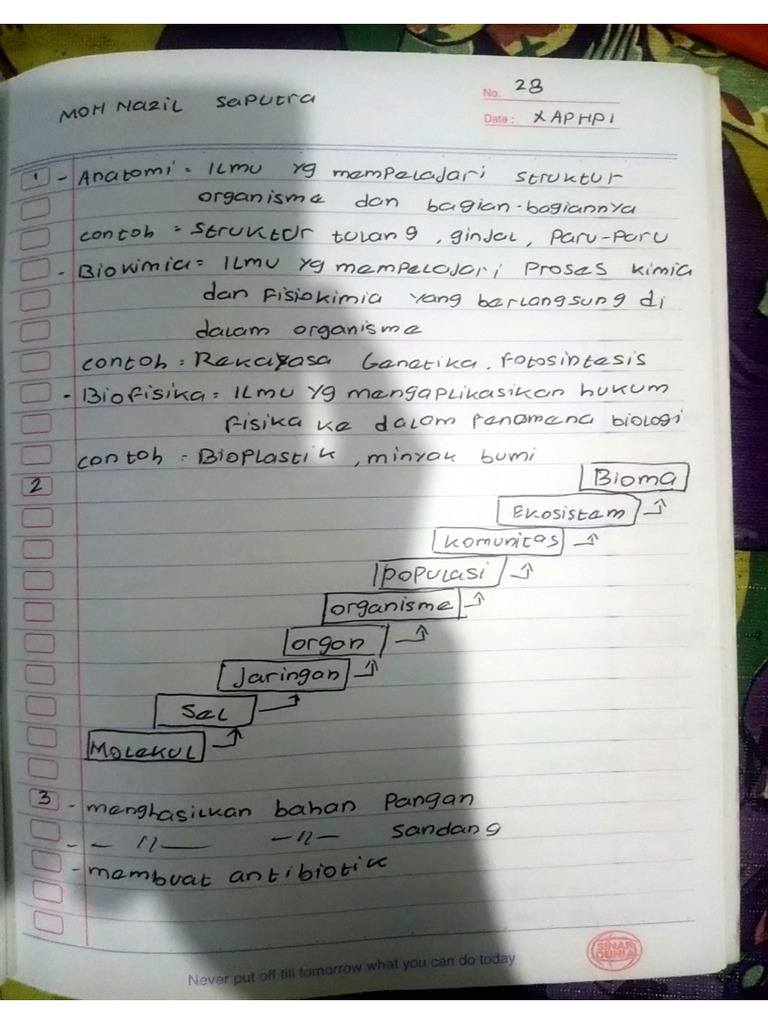 MOH Nazil Saputra
No. 28
Date: XAPHP1
1 - Anatomi = Ilmu yg mempelajari struktur
organisme dan bagian-bagiannya
contoh = Struktur tulang, ginjal, Paru-Paru
- Biokimia = Ilmu yg mempelajari Proses kimia
dan Fisiokimia yang berlangsung di
dalam organisme
contoh = Rekayasa Genetika. Fotosintesis
- Biofisika = Ilmu yg mengaplikasikan hukum
Fisika ke dalam fenomena biologi
contoh = Bioplastik, minyak bumi
2
Bioma
Ekosistem
Komunitas
populasi
organisme
organ
Jaringan
Sel
Molekul
3 - menghasilkan bahan Pangan
- - // - - // - Sandang
- membuat antibiotik
SINAR DUNIA
Never put off till tomorrow what you can do today